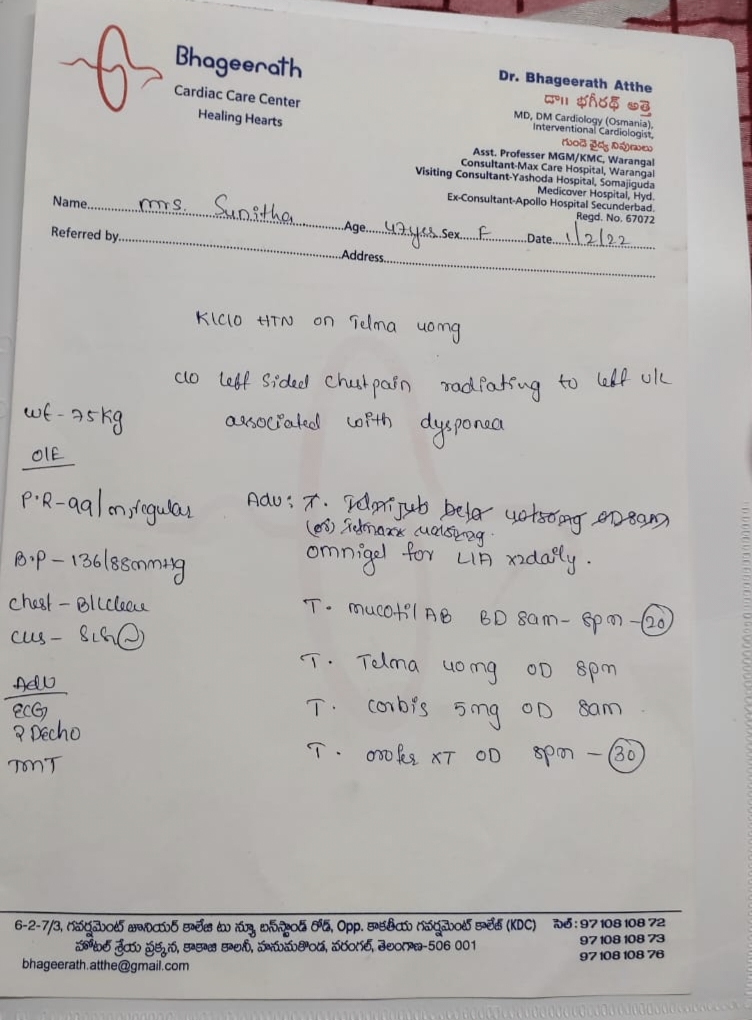 Bhageerath
Cardiac Care Center
Healing Hearts
Dr. Bhageerath Atthe
డా॥ భగీరథ్ అత్తె
MD, DM Cardiology (Osmania),
Interventional Cardiologist,
గుండె వైద్య నిపుణులు
Asst. Professer MGM/KMC, Warangal
Consultant-Max Care Hospital, Warangal
Visiting Consultant-Yashoda Hospital, Somajiguda
Medicover Hospital, Hyd.
Ex-Consultant-Apollo Hospital Secunderbad.
Regd. No. 67072
Name mrs. Sunitha Age 47yrs Sex F Date 1/2/22
Referred by Address
K/C/O HTN on Telma 40mg
c/o left sided chestpain radiating to left u/l
associated with dysponea
wt - 75kg
O/E
P.R - 99/m, regular
B.P - 136/88mmHg
chest - B/L clear
cvs - S1S2
Adv
ECG
2Decho
TMT
Adv: T.
omnigel for L/A x2daily.
T. mucotil AB BD 8am - 8pm - 20
T. Telma 40mg OD 8pm
T. corbis 5mg OD 8am
T. orofer XT OD 8pm - 30
6-2-7/3, గవర్నమెంట్ జూనియర్ కాలేజి టు న్యూ బస్‌స్టాండ్ రోడ్, Opp. కాకతీయ గవర్నమెంట్ కాలేజ్ (KDC) సెల్ : 97 108 108 72
హోటల్ శ్రేయ ప్రక్కన, కాకాజి కాలనీ, హనుమకొండ, వరంగల్, తెలంగాణ-506 001 97 108 108 73
bhageerath.atthe@gmail.com 97 108 108 76